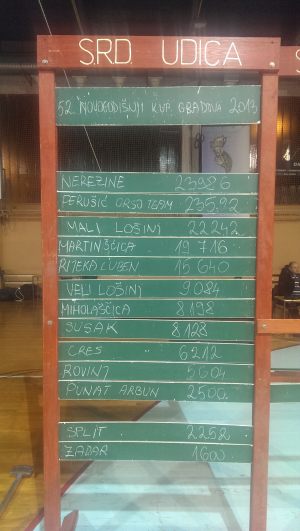 S.R.D. UDICA
52. NOVOGODIŠNJI KUP GRADOVA 2013
NEREZINE 23986
PERUŠIĆ ORSO TEAM 23592
MALI LOŠINJ 22242
MARTINŠĆICA 19 716
RIJEKA LUBEN 15 640
VELI LOŠINJ 9084
MIHOLAŠČICA 8198
SUSAK 8128
CRES 6212
ROVINJ 5604
PUNAT ARBUN 2500
SPLIT 2252
ZADAR 1600